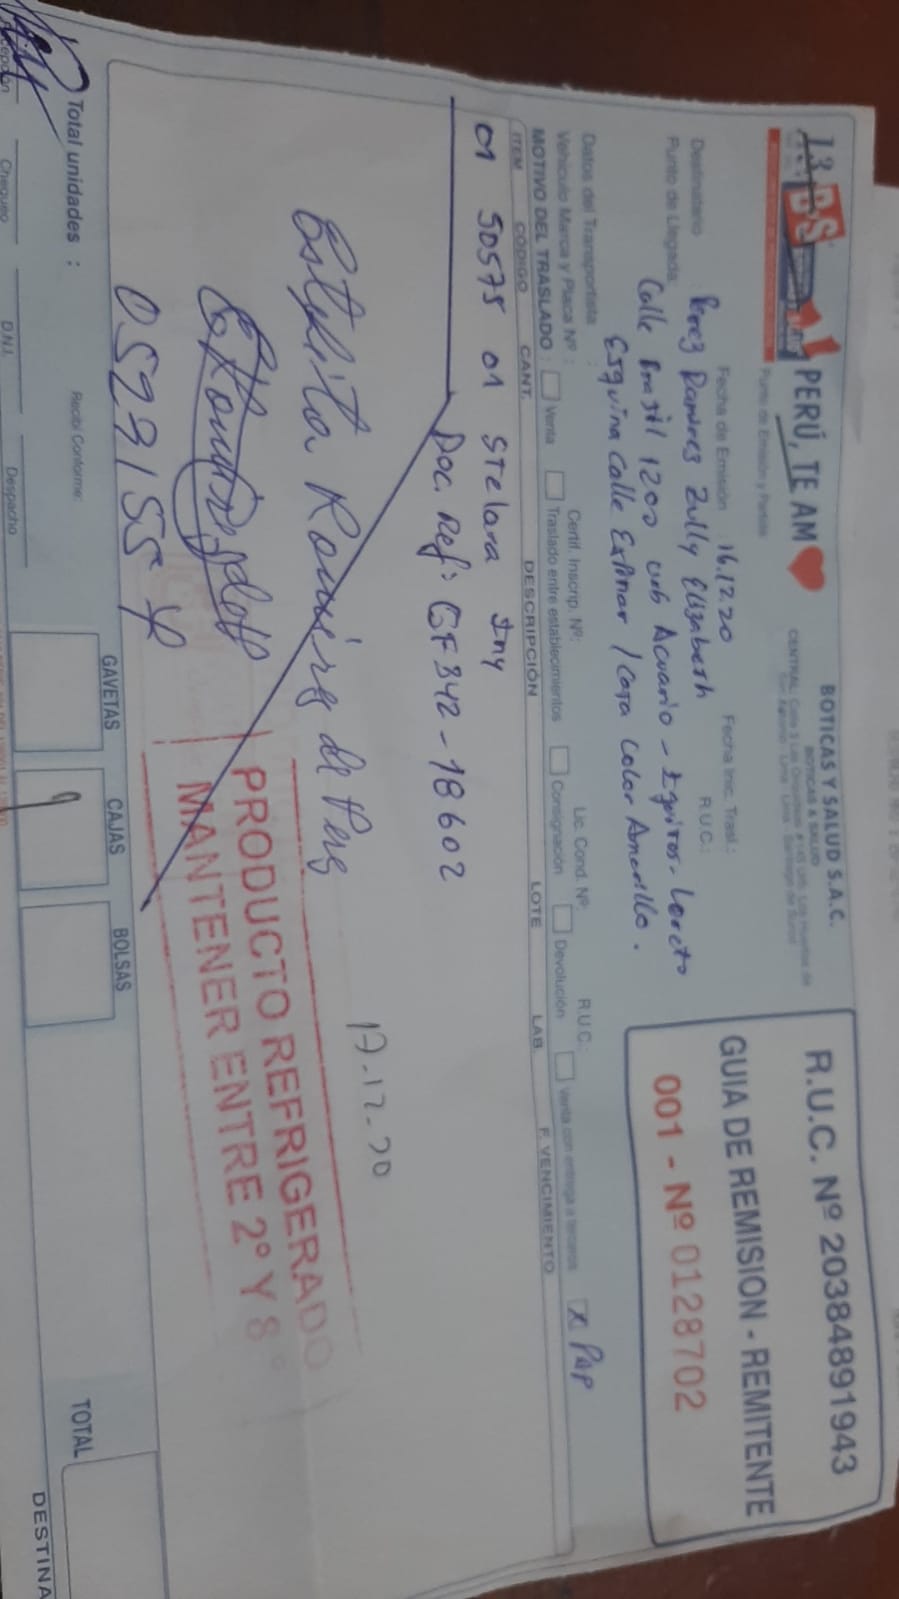 B&S PERÚ, TE AM
BOTICAS Y SALUD S.A.C.
BOTICAS & SALUD
R.U.C. Nº 20384891943
GUIA DE REMISION - REMITENTE
001 - Nº 0128702
Punto de Emisión y Partida
Fecha de Emisión : 16.12.20 Fecha Inic. Trasl.:
Destinatario : Perez Ramires Zully Elizabeth R.U.C.:
Punto de Llegada: Calle Brasil 1200 urb Acuario - Iquitos - Loreto
Esquina calle / Casa color Amarillo.
Datos del Transportista :
Vehículo Marca y Placa Nº : Certif. Inscrip. Nº: Lic. Cond. Nº: R.U.C.:
MOTIVO DEL TRASLADO : Venta Traslado entre establecimientos Consignación Devolución Venta con entrega a terceros X PAP
ITEM CÓDIGO CANT. DESCRIPCIÓN LOTE LAB. F. VENCIMIENTO
01 50575 01 Stelara Iny
Doc. Ref: GF342-18602
Estelita Ramírez de Perez
17-12-20
05931554
PRODUCTO REFRIGERADO
MANTENER ENTRE 2° Y 8°
Total unidades : Recibí Conforme:
GAVETAS CAJAS BOLSAS TOTAL
Chequeo D.N.I. Despacho
DESTINA